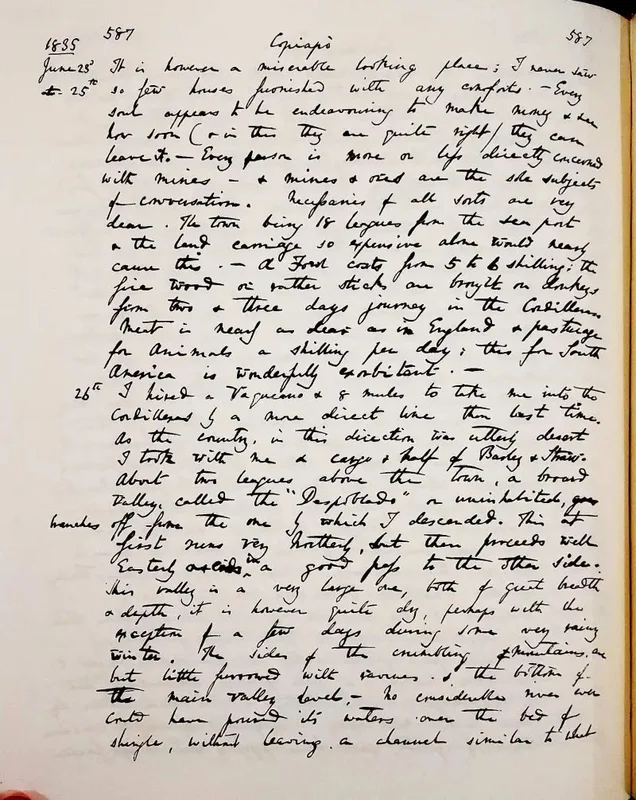 587 587
1835 Copiapò
June 23d It is however a miserable looking place; I never saw
to 25th so few houses furnished with any comforts. — Every
soul appears to be endeavouring to make money & see
how soon (& in this they are quite right) they can
leave it. — Every person is more or less directly concerned
with mines — & mines & ores are the sole subjects
of conversation. Necessaries of all sorts are very
dear. The town being 18 leagues from the sea port
& the land carriage so expensive alone would nearly
cause this. — A Fowl costs from 5 to 6 shillings; the
fire wood or rather sticks are brought on donkeys
from two & three days journey in the Cordilleras
Meat is nearly as dear as in England & pasturage
for Animals a shilling per day; this for South
America is wonderfully exorbitant. —
26th I hired a Vaqueano & 8 mules to take me into the
Cordilleras by a more direct line than last time.
As the country, in this direction was utterly desert
I took with me a cargo & half of Barley & Straw.
About two leagues above the town, a broad
valley, called the "Despoblado" or uninhabited,
branches off from the one by which I descended. This at
first runs very Northerly, but then proceeds well
Easterly in a good pass to the other side.
This valley is a very large one, both of great breadth
& depth, it is however quite dry, perhaps with the
exception of a few days during some very rainy
winter. The sides of the crumbling mountains are
but little furrowed with ravines & the bottom of
the main valley level, — no considerable river ever
could have poured its waters over the bed of
shingle, without leaving a channel similar to what